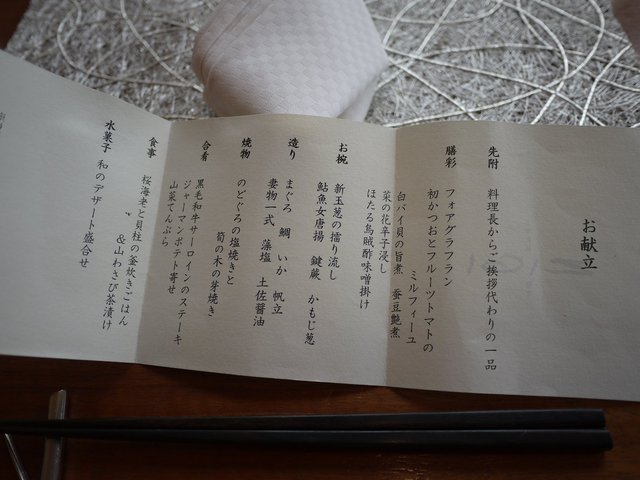 お献立
先附 料理長からご挨拶代わりの一品
膳彩 フォアグラフラン
初かつおとフルーツトマトの
ミルフィーユ
白バイ貝の旨煮 蚕豆艶煮
菜の花辛子浸し
ほたる烏賊酢味噌掛け
お椀 新玉葱の擂り流し
鮎魚女唐揚 鍵蕨 かもじ葱
造り まぐろ 鯛 いか 帆立
妻物一式 藻塩 土佐醤油
焼物 のどぐろの塩焼きと
筍の木の芽焼き
合肴 黒毛和牛サーロインのステーキ
ジャーマンポテト寄せ
山菜てんぷら
食事 桜海老と貝柱の釜炊きごはん
&山わさび茶漬け
水菓子 和のデザート盛合せ